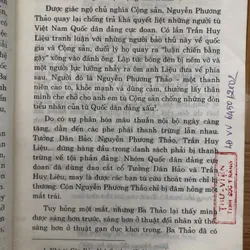 Được giác ngộ chủ nghĩa Cộng sản, Nguyễn Phương
Thảo quay lại chống trả khá quyết liệt những người tù
Việt Nam Quốc dân đảng cực đoan. Có lần Trần Huy
Liệu tranh luận với những người bảo thủ này về quốc
gia và Cộng sản, đuối lý họ quay ra "luận chiến bằng
gậy" xông vào đánh ông. Lập tức bỗng đèn bị ném vỡ và
một người lực lưỡng nhảy ra ôm lấy Liệu đưa ra phía
sau. Người đó là Nguyễn Phương Thảo - một thanh
niên cao to, khỏe mạnh và đứng đắn, đã từng thể hiện
chí khí bênh che cho anh em tù Cộng sản chống những
đòn tiến thù của tù Quốc dân đảng xấu".
Do có sự phân hóa mâu thuẫn nội bộ ngày càng
tăng, dẫn đến các phe phái thanh trừng lẫn nhau.
Tưởng Dân Bảo, Nguyễn Phương Thảo, Trần Huy
Liệu... đứng trong danh sách những người phải bị thanh
trừng về tội phản đảng. Nhóm Quốc dân đảng cực
đoan đã dùng dao đâm cổ Tưởng Dân Bảo và Trần
Huy Liệu, may mà được các bạn tù cứu thoát nên chỉ bị
thương. Còn Nguyễn Phương Thảo chỉ bị đâm hỏng một
mắt.
Tuy hỏng một mắt, nhưng Ba Thảo lại thấy mình
được sáng hơn trước, sáng hơn ở thuật đối nhân xử thế,
sáng hơn ở thuật gạn đục khơi trong. Ba Thảo đã có
THƯ VIỆN